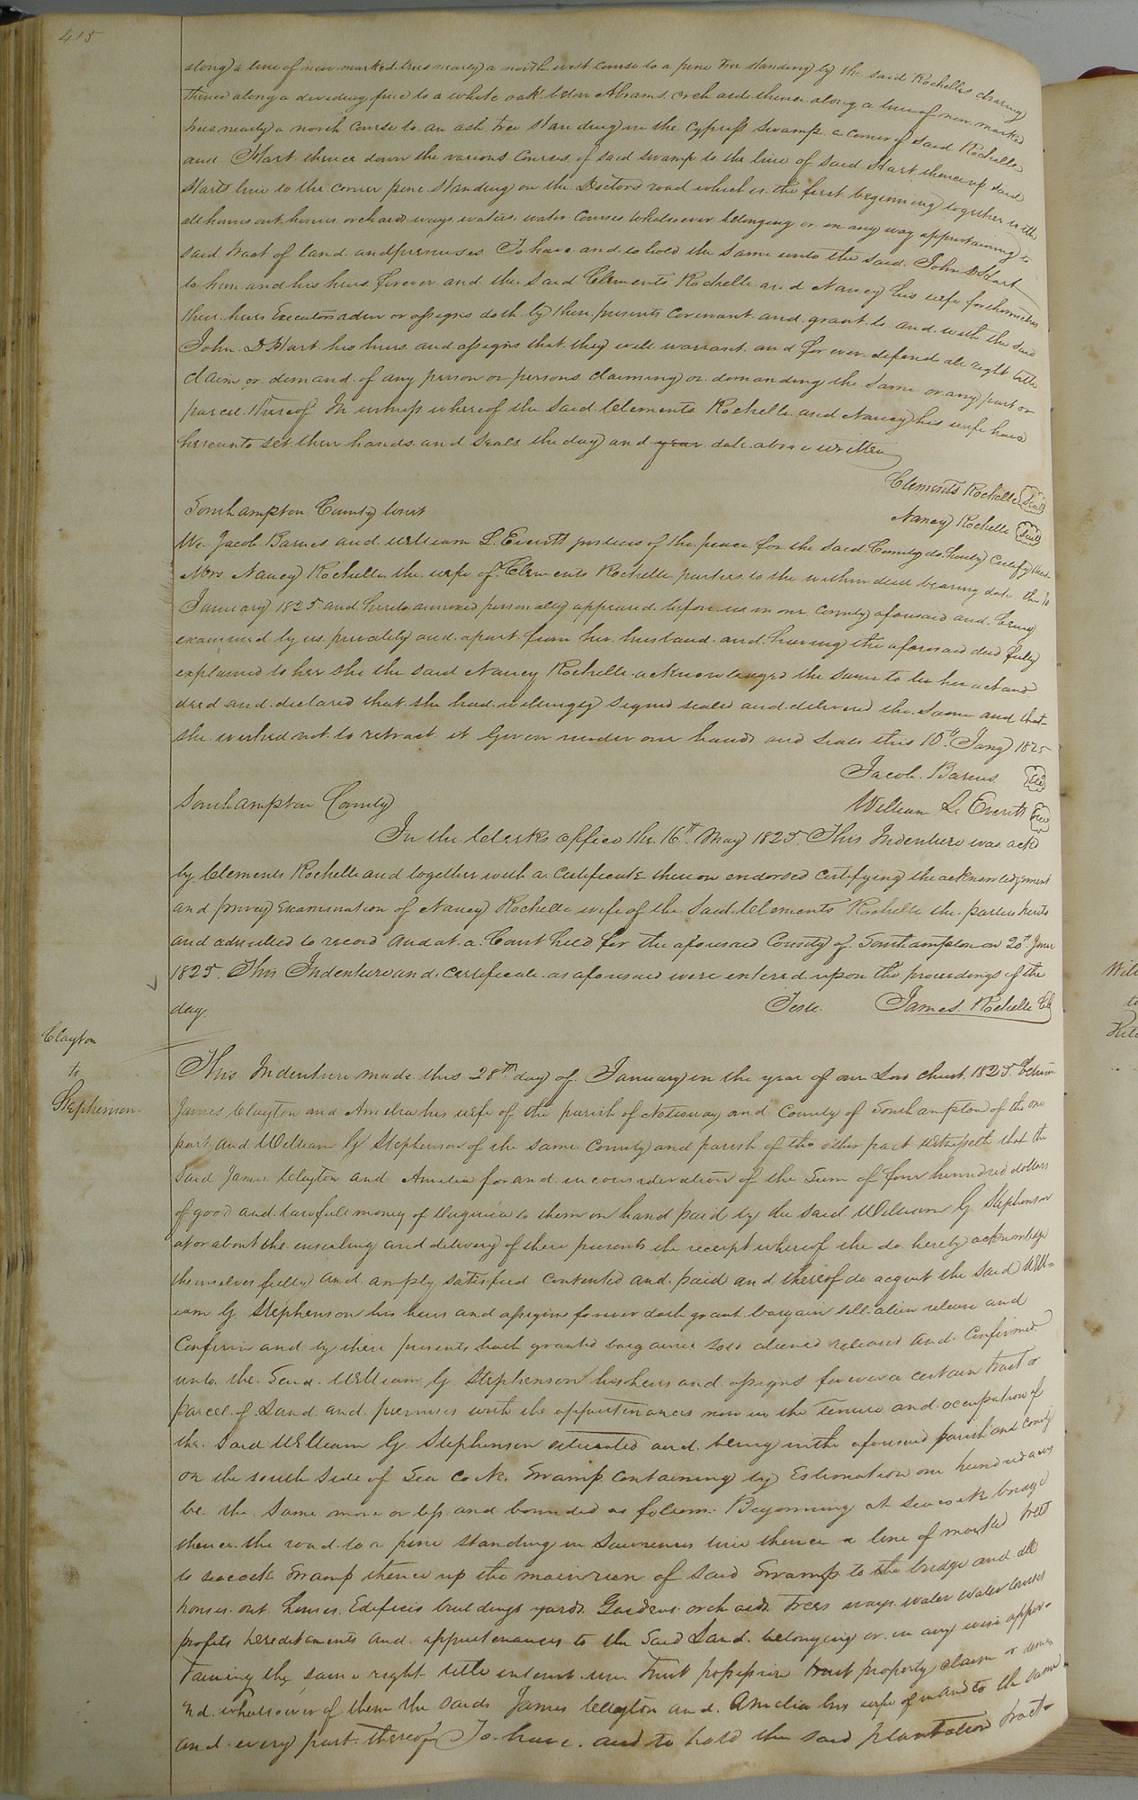 415
along a line of new marked trees nearly a north west course to a pine tree standing by the said Rochelles clearing
thence along a dividing fence to a white oak below Abrams orchard thence along a line of new marked
trees nearly a north course to an ash tree standing in the Cypress Swamp a corner of said Rochelle
and Hart thence down the various courses of said swamp to the line of said Hart thence up said
Harts line to the corner pine standing on the Doctors road which is the first beginning together with
all houses out houses orchards ways waters water courses whatsoever belonging or in any way appertaining to
said tract of land and premises To have and to hold the same unto the said John D Hart
to him and his heirs forever and the said Clements Rochelle and Nancy his wife for themselves
their heirs Executors adm or assigns doth by these presents covenant and grant to and with the said
John D Hart his heirs and assigns that they will warrant and for ever defend all right title
claim or demand of any person or persons claiming or demanding the same or any part or
parcel thereof In witness whereof the said Clements Rochelle and Nancy his wife have
hereunto set their hands and seals the day and year date above written
Clements Rochelle Seal
Nancy Rochelle Seal
Southampton County Court
We Jacob Barnes and William L. Everitt justices of the peace for the said County do hereby certify that
Mrs Nancy Rochelle the wife of Clements Rochelle parties to the within deed bearing date the 10
January 1825 and hereto annexed personally appeared before us in our County aforesaid and being
examined by us privately and apart from her husband and having the aforesaid deed fully
explained to her she the said Nancy Rochelle acknowledged the same to be her act and
deed and declared that she had willingly signed sealed and delivered the same and that
she wished not to retract it Given under our hands and seals this 10th Jany 1825
Jacob Barnes Seal
William L. Everitt Seal
Southampton County
In the Clerks office the 16th May 1825. This Indenture was ackd
by Clements Rochelle and together with a certificate thereon endorsed certifying the acknowledgment
and privey examination of Nancy Rochelle wife of the said Clements Rochelle the parties hereto
and admitted to record And at a Court held for the aforesaid County of Southampton on 20th June
1825. This Indenture and certificate as aforesaid were entered upon the proceedings of the
day.
Teste. James Rochelle Clk
Clayton
to
Stephenson
This Indenture made this 28th day of January in the year of our Lord christ 1825 between
James Clayton and Amelia his wife of the parish of Nottoway and County of Southampton of the one
part and William G Stephenson of the same County and parish of the other part Witnesseth that the
said James Clayton and Amelia for and in consideration of the sum of four hundred dollars
of good and lawfull money of Virginia to them in hand paid by the said William G Stephenson
at or about the ensealing and delivery of these presents the receipt whereof the do hereby acknowledge
themselves fully and amply satisfied contented and paid and thereof do acquit the said Will-
iam G Stephenson his heirs and assigns forever doth grant bargain sell alien release and
Confirm and by these presents hath granted bargained sold aliened released and confirmed
unto the said William G Stephenson his heirs and assigns forever a certain tract or
parcel of Land and premises with the appurtenances now in the tenure and occupation of
the said William G Stephenson situated and being in the aforesaid parish and County
on the south side of Sea Cock Swamp containing by Estimation one hundred acres
be the same more or less and bounded as follows Beginning at Seacock bridge
thence the road to a pine standing in line thence a line of marked trees
to seacock Swamp thence up the main run of said Swamp to the bridge and all
houses out houses Edificis buildings yards Gardens orchards Trees ways water water courses
profits hereditaments and appurtenances to the said Land belonging or in any wise apper-
taining the same right title interest use trust possession trust property claim or dema-
nd whatsoever of them the saids James Clayton and Amelia his wife of in and to the same
and every part thereof To have and to hold the said plantation tract